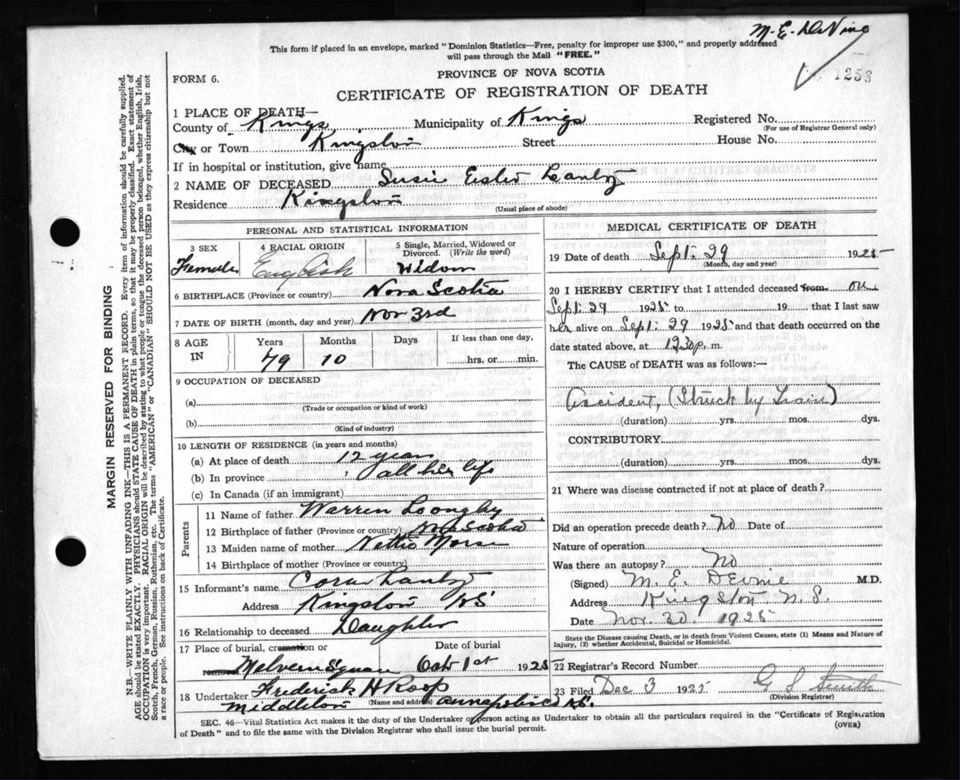 M. E. DeVine
This form if placed in an envelope, marked "Dominion Statistics—Free, penalty for improper use $300," and properly addressed
will pass through the Mail "FREE."
1253
FORM 6.
PROVINCE OF NOVA SCOTIA
CERTIFICATE OF REGISTRATION OF DEATH
1 PLACE OF DEATH—
County of Kings Municipality of Kings Registered No.
(For use of Registrar General only)
City or Town Kingston Street House No.
If in hospital or institution, give name
2 NAME OF DECEASED Susie Lantz
Residence Kingston
(Usual place of abode)
PERSONAL AND STATISTICAL INFORMATION
3 SEX
Female
4 RACIAL ORIGIN
English
5 Single, Married, Widowed or Divorced. (Write the word)
Widow
6 BIRTHPLACE (Province or country) Nova Scotia
7 DATE OF BIRTH (month, day and year) Nov 3rd
8 AGE IN
Years Months Days If less than one day,
79 10 hrs. or min.
9 OCCUPATION OF DECEASED
(a)
(Trade or occupation or kind of work)
(b)
(Kind of industry)
10 LENGTH OF RESIDENCE (in years and months)
(a) At place of death 12 years
(b) In province all her life
(c) In Canada (if an immigrant)
Parents
11 Name of father Warren Longley
12 Birthplace of father (Province or country) N. Scotia
13 Maiden name of mother Morse
14 Birthplace of mother (Province or country)
15 Informant's name Cora Lantz
Address Kingston NS
16 Relationship to deceased Daughter
17 Place of burial, cremation or removal Date of burial
Melvern Square Oct 1st 1925
18 Undertaker Frederick H Roop
(Name and address)
Middleton Annapolis Co NS.
MEDICAL CERTIFICATE OF DEATH
19 Date of death Sept. 29 1925
(Month, day and year)
20 I HEREBY CERTIFY that I attended deceased from on
Sept. 29 1925 to 19 that I last saw
her alive on Sept. 29 1925 and that death occurred on the
date stated above, at m.
The CAUSE of DEATH was as follows:—
Accident, (Struck by Train)
(duration) yrs. mos. dys.
CONTRIBUTORY
(duration) yrs. mos. dys.
21 Where was disease contracted if not at place of death?
Did an operation precede death? No Date of
Nature of operation
Was there an autopsy? No
(Signed) M. E. M.D.
Address Kingston N. S.
Date Nov. 30. 1925
State the Disease causing Death, or in death from Violent Causes, state (1) Means and Nature of
Injury, (2) whether Accidental, Suicidal or Homicidal.
22 Registrar's Record Number
23 Filed Dec 3 1925 G S
(Division Registrar)
SEC. 46—Vital Statistics Act makes it the duty of the Undertaker or person acting as Undertaker to obtain all the particulars required in the "Certificate of Registration
of Death" and to file the same with the Division Registrar who shall issue the burial permit.
(OVER)
MARGIN RESERVED FOR BINDING
N.B.—WRITE PLAINLY WITH UNFADING INK—THIS IS A PERMANENT RECORD. Every item of information should be carefully supplied.
AGE should be stated EXACTLY. PHYSICIANS should STATE CAUSE OF DEATH in plain terms, so that it may be properly classified. Exact statement of
OCCUPATION is very important. RACIAL ORIGIN will be described by stating to what people or tongue the deceased person belonged, whether English, Irish,
Scotch, French, German, Russian, Ruthenian, etc. The terms "AMERICAN" or "CANADIAN" SHOULD NOT BE USED as they express citizenship but not
a race or people. See instructions on back of Certificate.